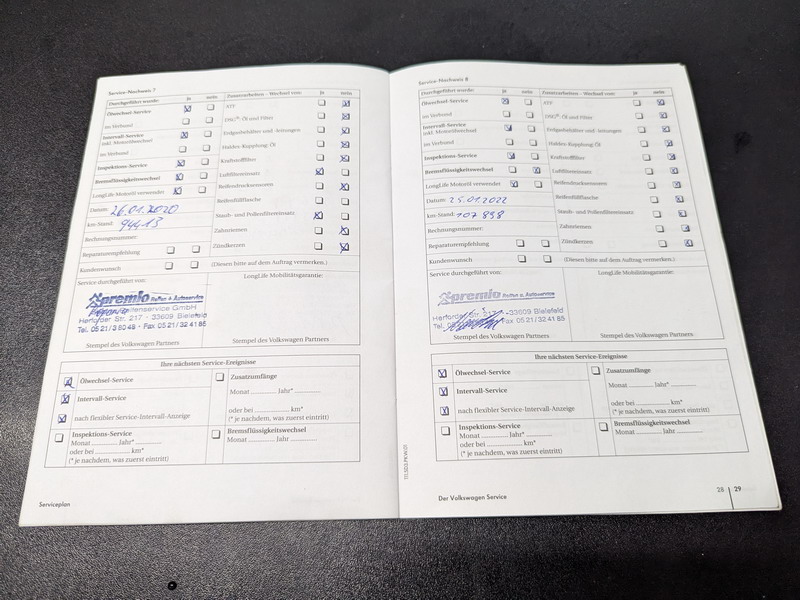 Service-Nachweis 7
Durchgeführt wurde: ja nein Zusatzarbeiten - Wechsel von: ja nein
Ölwechsel-Service ATF
im Verbund DSG®: Öl und Filter
Intervall-Service Erdgasbehälter und -leitungen
inkl. Motorölwechsel
im Verbund Haldex-Kupplung: Öl
Inspektions-Service Kraftstofffilter
Bremsflüssigkeitswechsel Luftfiltereinsatz
LongLife-Motoröl verwendet Reifendrucksensoren
Datum: 26.01.2020 Reifenfüllflasche
km-Stand: 94413 Staub- und Pollenfiltereinsatz
Rechnungsnummer: Zahnriemen
Reparaturempfehlung Zündkerzen
Kundenwunsch (Diesen bitte auf dem Auftrag vermerken.)
Service durchgeführt von: LongLife Mobilitätsgarantie:
premio Reifen + Autoservice
Reifenservice GmbH
Herforder Str. 217 - 33609 Bielefeld
Tel. 05 21/3 80 48 - Fax 05 21/32 41 85
Stempel des Volkswagen Partners Stempel des Volkswagen Partners
Ihre nächsten Service-Ereignisse
Ölwechsel-Service Zusatzumfänge
Intervall-Service Monat Jahr*
nach flexibler Service-Intervall-Anzeige oder bei km*
(* je nachdem, was zuerst eintritt)
Inspektions-Service Bremsflüssigkeitswechsel
Monat Jahr* Monat Jahr
oder bei km*
(* je nachdem, was zuerst eintritt)
Serviceplan
Service-Nachweis 8
Durchgeführt wurde: ja nein Zusatzarbeiten - Wechsel von: ja nein
Ölwechsel-Service ATF
im Verbund DSG®: Öl und Filter
Intervall-Service Erdgasbehälter und -leitungen
inkl. Motorölwechsel
im Verbund Haldex-Kupplung: Öl
Inspektions-Service Kraftstofffilter
Bremsflüssigkeitswechsel Luftfiltereinsatz
LongLife-Motoröl verwendet Reifendrucksensoren
Datum: 25.01.2022 Reifenfüllflasche
km-Stand: 107 898 Staub- und Pollenfiltereinsatz
Rechnungsnummer: Zahnriemen
Reparaturempfehlung Zündkerzen
Kundenwunsch (Diesen bitte auf dem Auftrag vermerken.)
Service durchgeführt von: LongLife Mobilitätsgarantie:
premio Reifen + Autoservice
Herforder Str. 217 - 33609 Bielefeld
Tel. Fax 05 21/32 41 85
Stempel des Volkswagen Partners Stempel des Volkswagen Partners
Ihre nächsten Service-Ereignisse
Ölwechsel-Service Zusatzumfänge
Intervall-Service Monat Jahr*
nach flexibler Service-Intervall-Anzeige oder bei km*
(* je nachdem, was zuerst eintritt)
Inspektions-Service Bremsflüssigkeitswechsel
Monat Jahr* Monat Jahr
oder bei km*
(* je nachdem, was zuerst eintritt)
Der Volkswagen Service
28 29